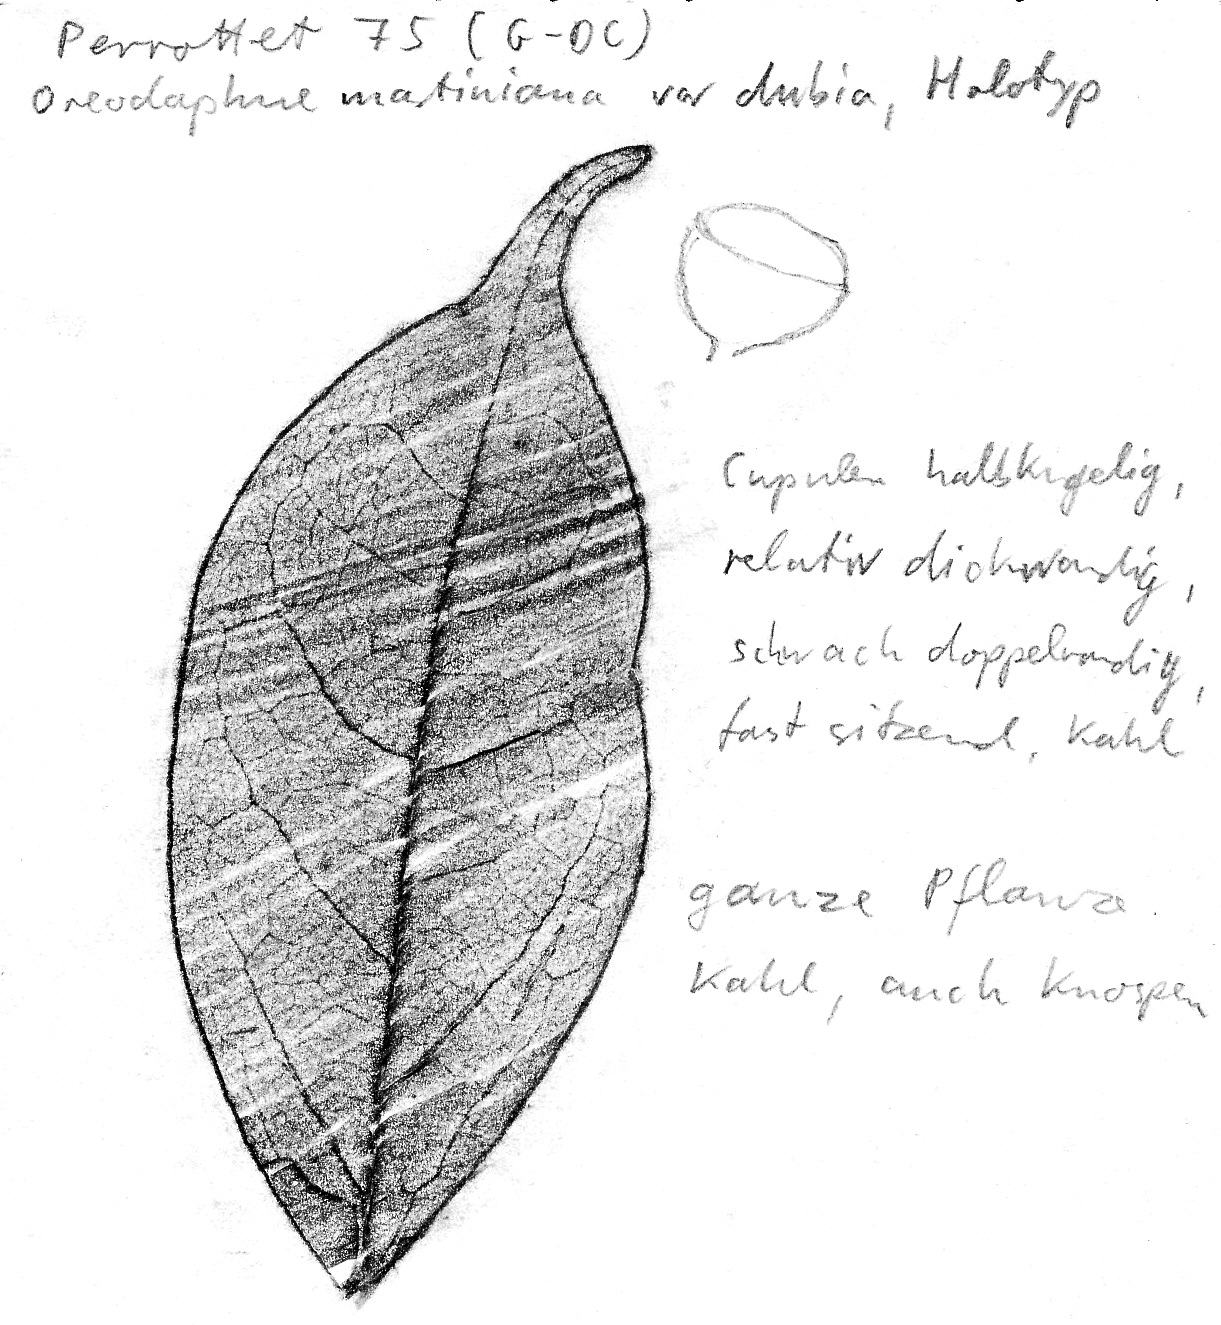 Perrottet 75 (G-DC)
Oreodaphne martiniana var dubia, Holotyp
Cupulen halbkugelig,
relativ dickwandig,
schwach doppelrandig,
fast sitzend, kahl
ganze Pflanze
kahl, auch Knospen